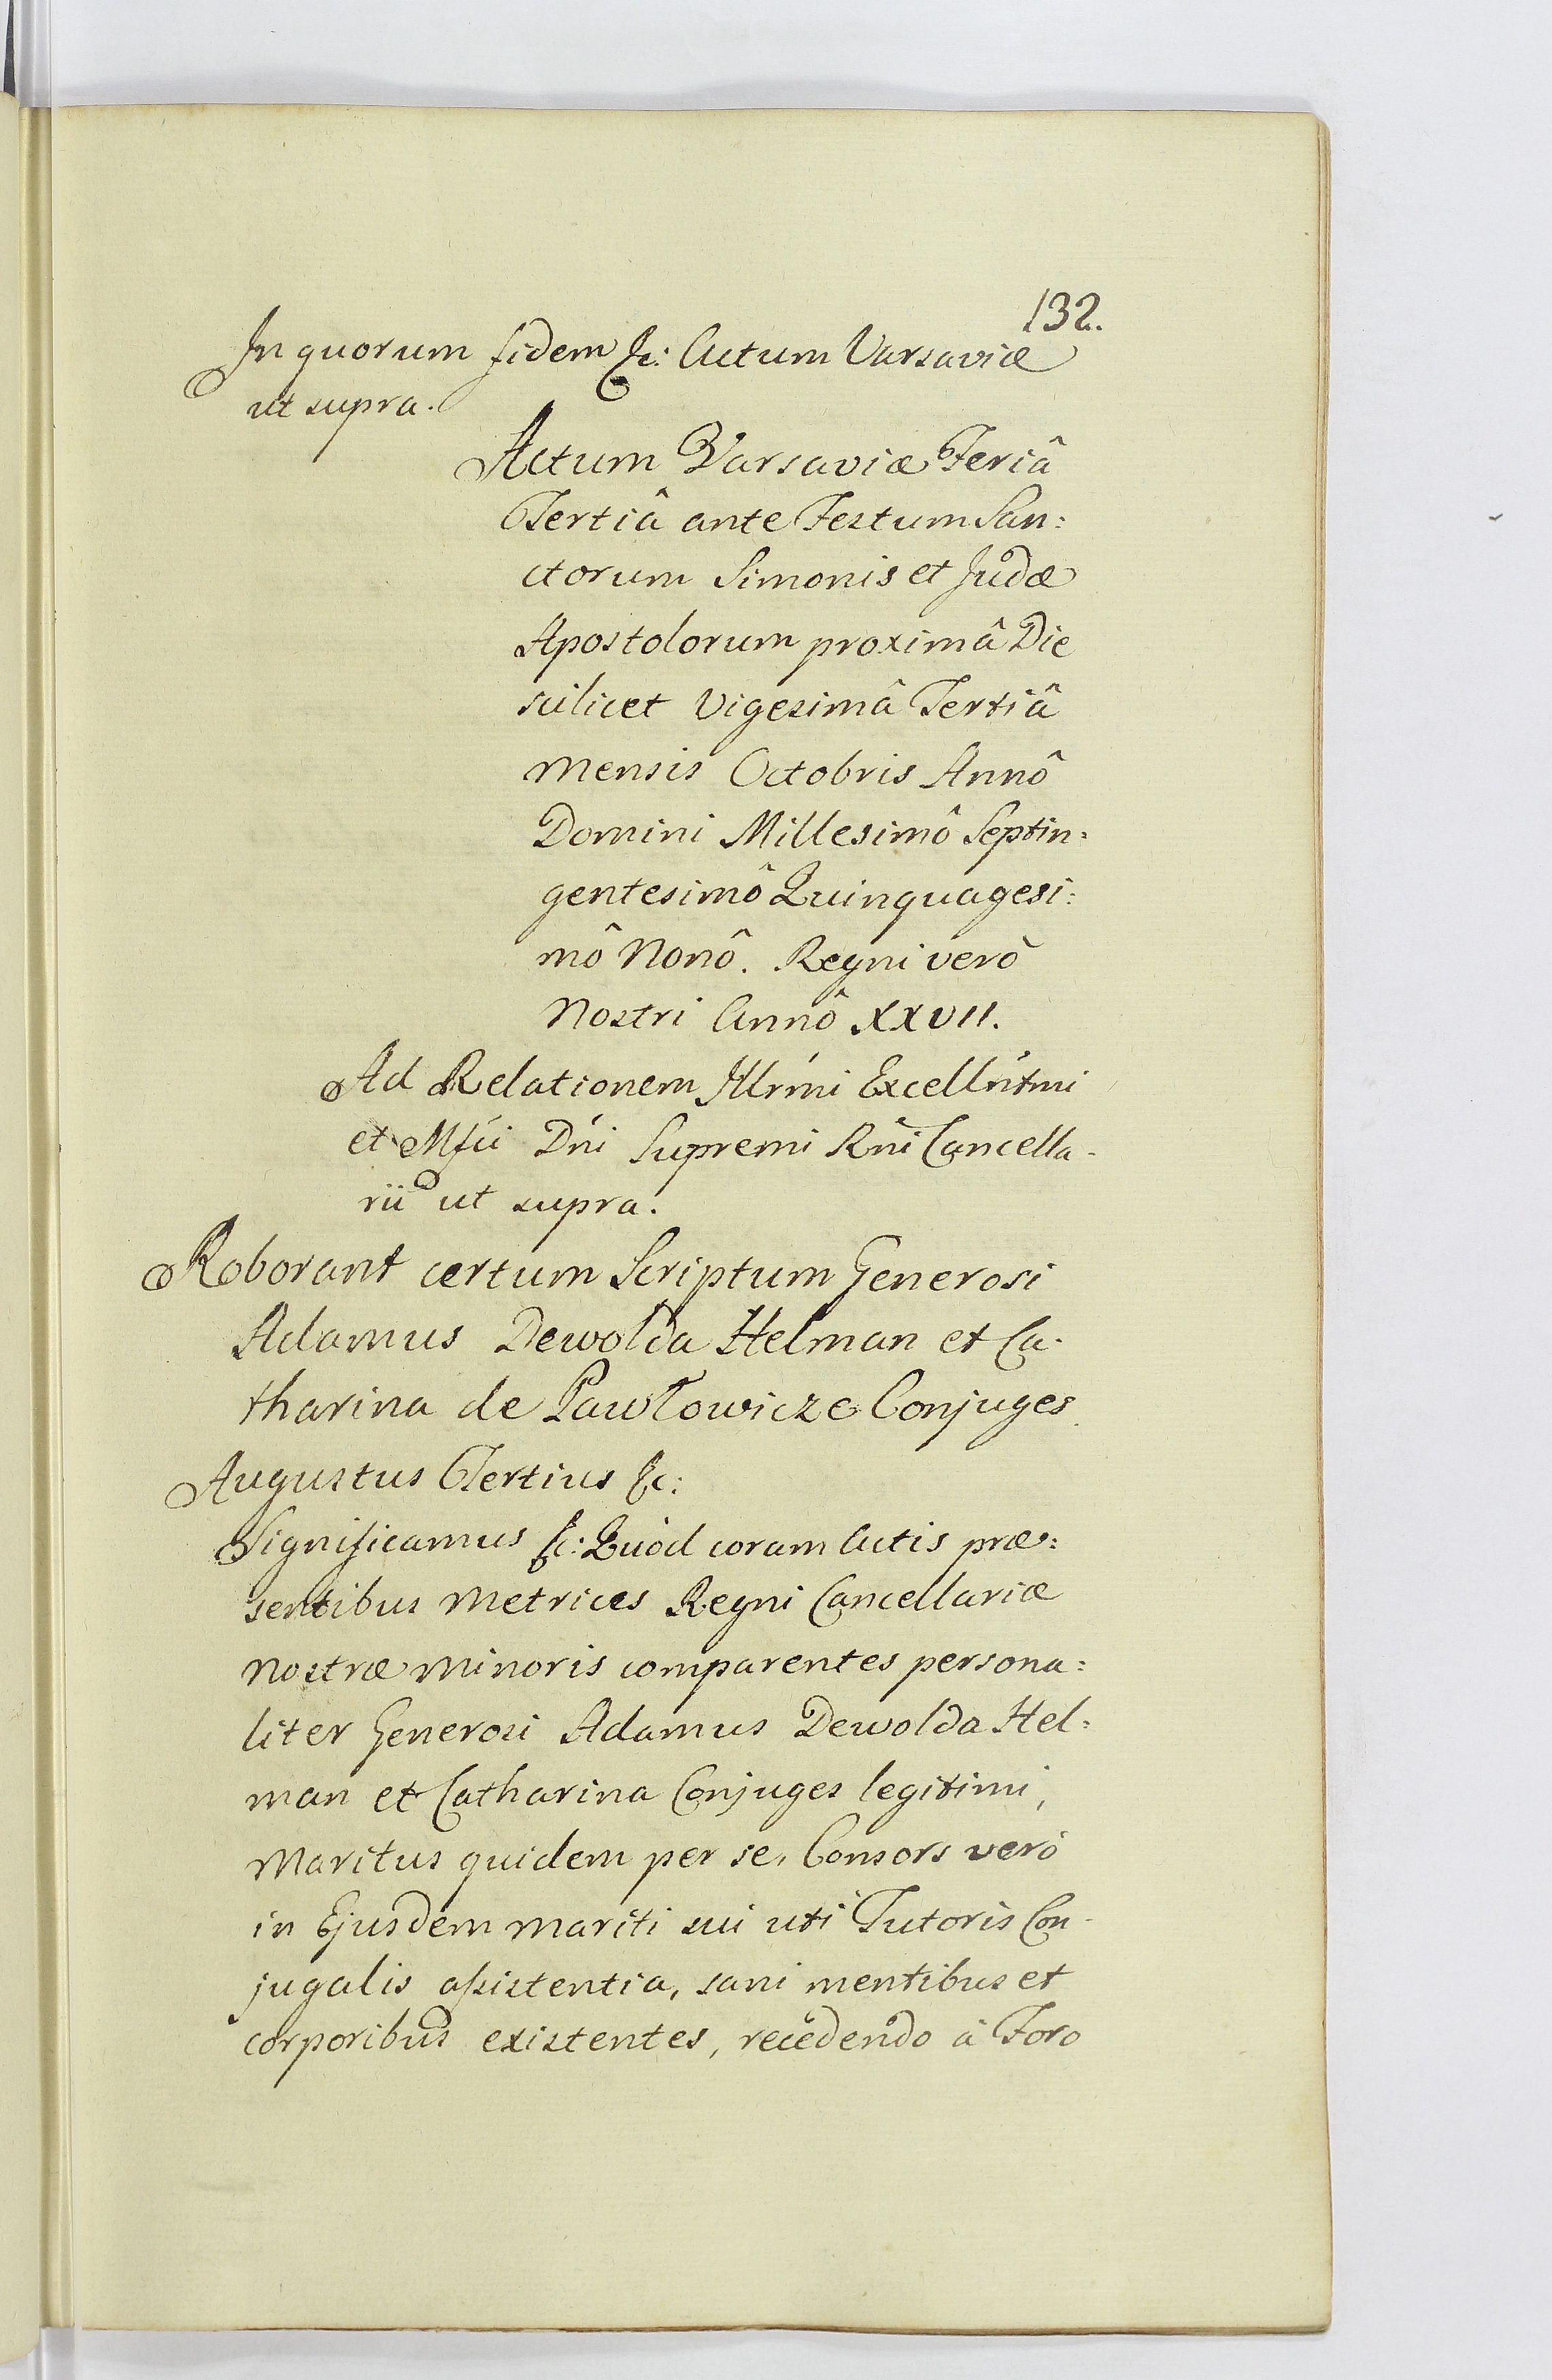 132.
In quorum fidem &c: Actum Varsaviæ
ut supra.
Actum Varsaviæ Feriâ
Tertiâ ante Festum San:
ctorum Simonis et Judæ
Apostolorum proximâ Die
scilicet Vigesimâ Tertiâ
Mensis Octobris Annô
Domini Millesimô Septin:
gentesimô Quinquagesi:
mô Nonô. Regni verò
Nostri Annô XXVII.
Ad Relationem Illrmi Excellńtmi
et Mfci Dńi Supremi Rńi Cancella-
rii ut supra.
Roborant certum Scriptum Generosi
Adamus Dewolda Helman et Ca-
tharina de Pawłowicze Conjuges
Augustus Tertius &c:
Significamus &c: Quòd coram Actis præ:
sentibus Metrices Regni Cancellariæ
Nostræ Minoris comparentes persona:
liter Generosi Adamus Dewolda Hel:
man et Catharina Conjuges legitimi,
Maritus quidem per se, Consors verò
in Ejusdem Mariti sui uti Tutoris Con-
jugalis assistentia, sani mentibus et
corporibus existentes, recedendo à Foro